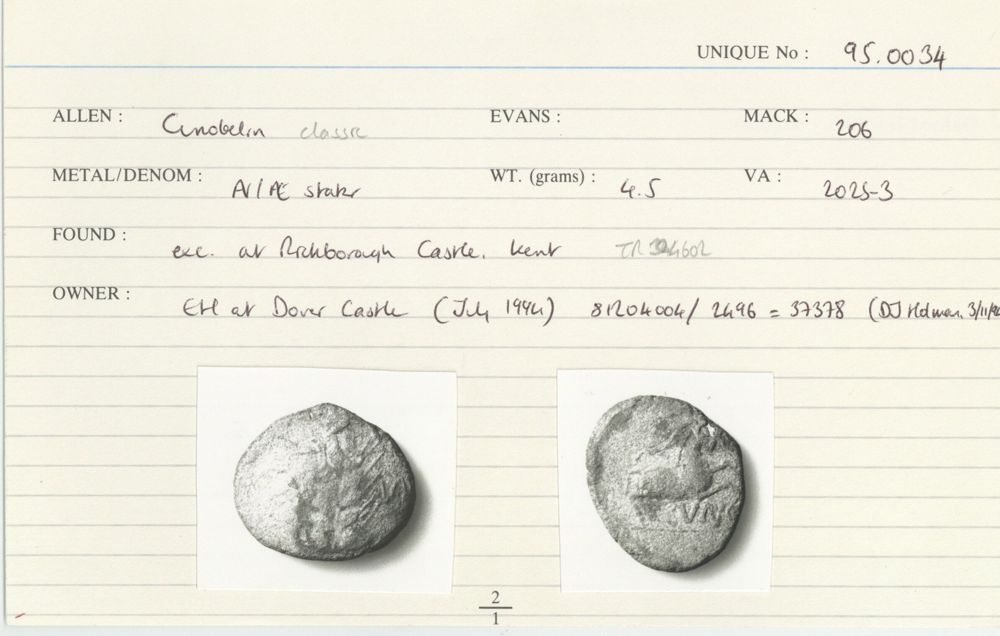 UNIQUE No : 95.0034
ALLEN : Cunobelin classic EVANS : MACK : 206
METAL/DENOM : AV/AE stater WT. (grams) : 4.5 VA : 2025-3
FOUND : exc. at Richborough Castle, Kent TR 324602
OWNER : EH at Dover Castle (July 1994) 81204004/2496 = 37378 (DJ Holman, 3/11/
VN
2
1